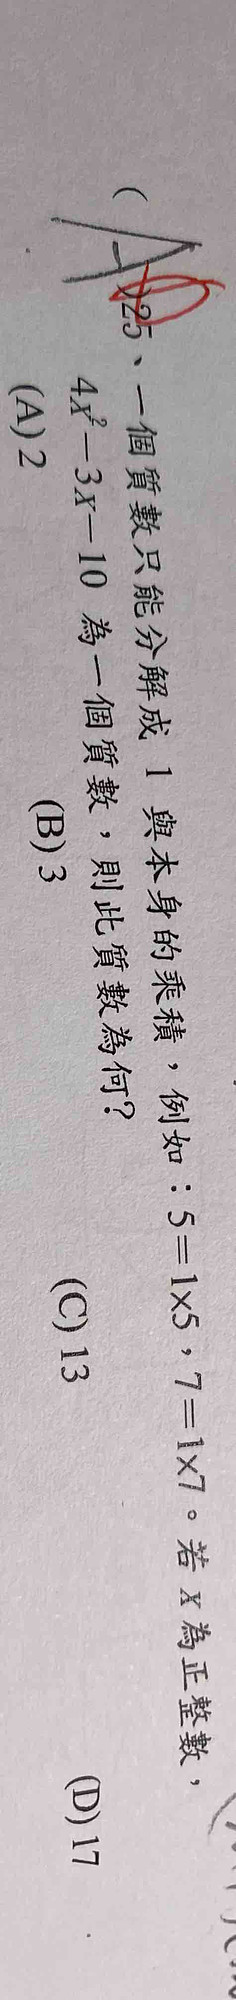 ( A )25、一個質數只能分解成 1 與本身的乘積，例如：5＝1×5，7＝1×7。若 x 為正整數，
4x²－3x－10 為一個質數，則此質數為何？
(A) 2 (B) 3 (C) 13 (D) 17